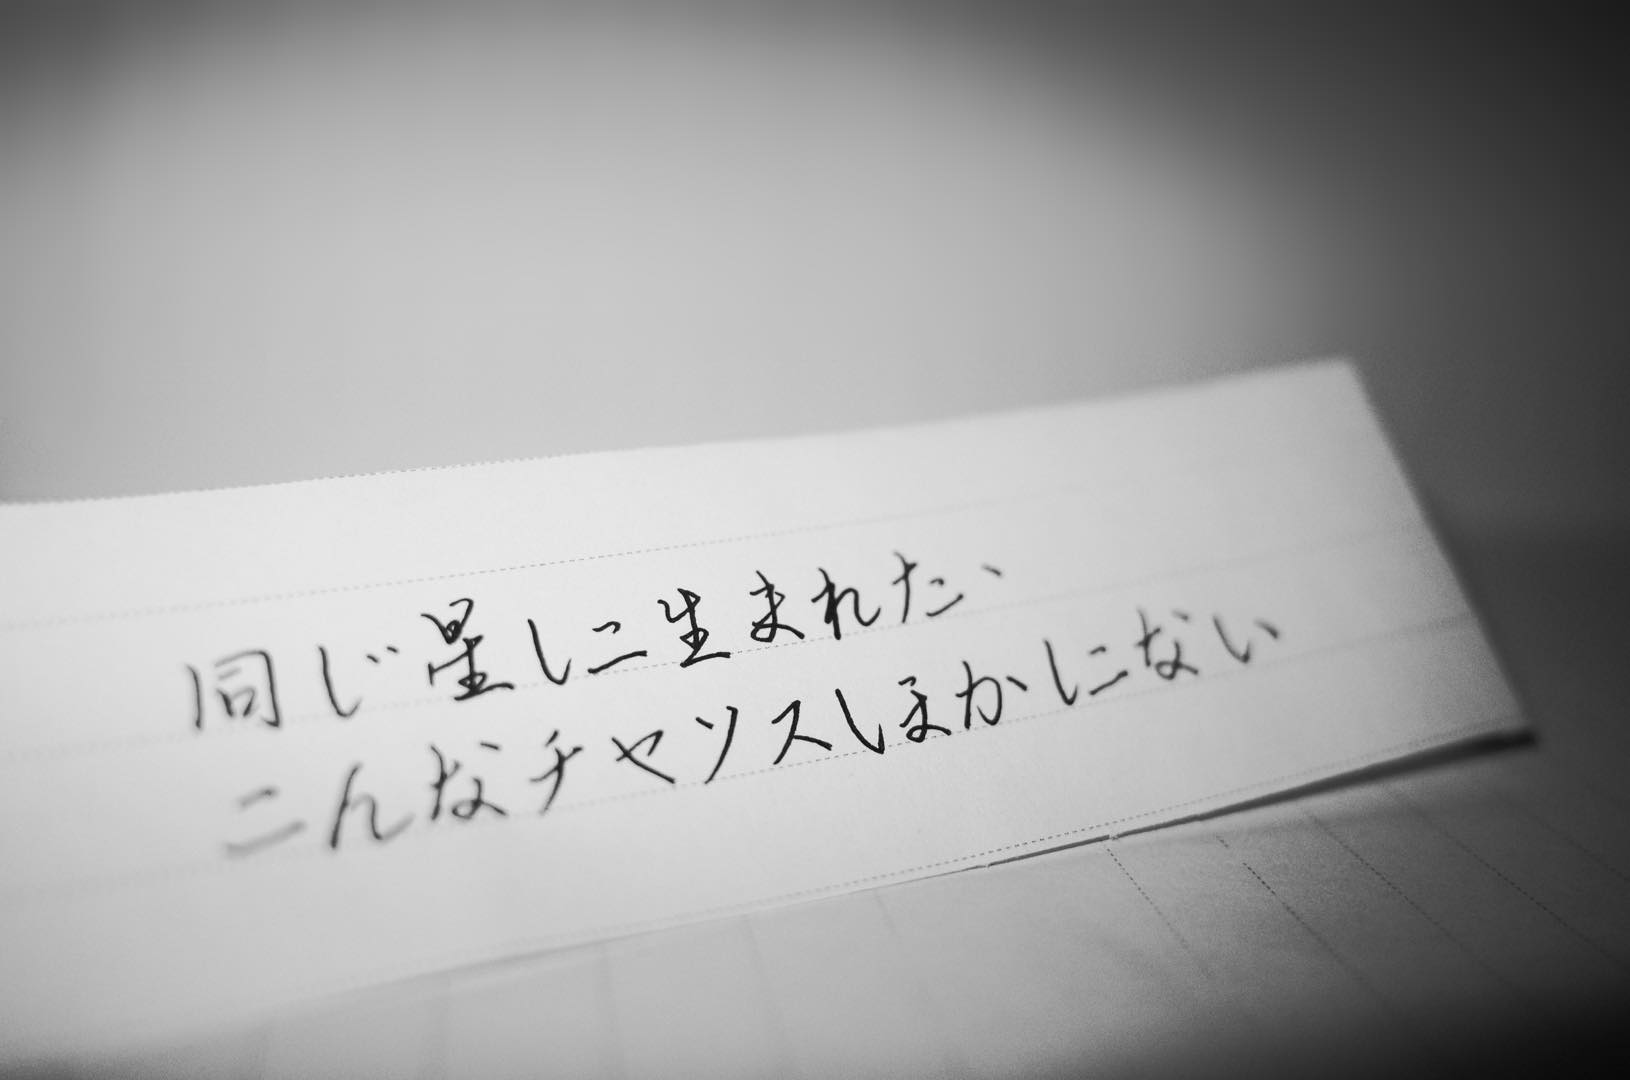 同じ星に生まれた、
こんなチャンスほかにない